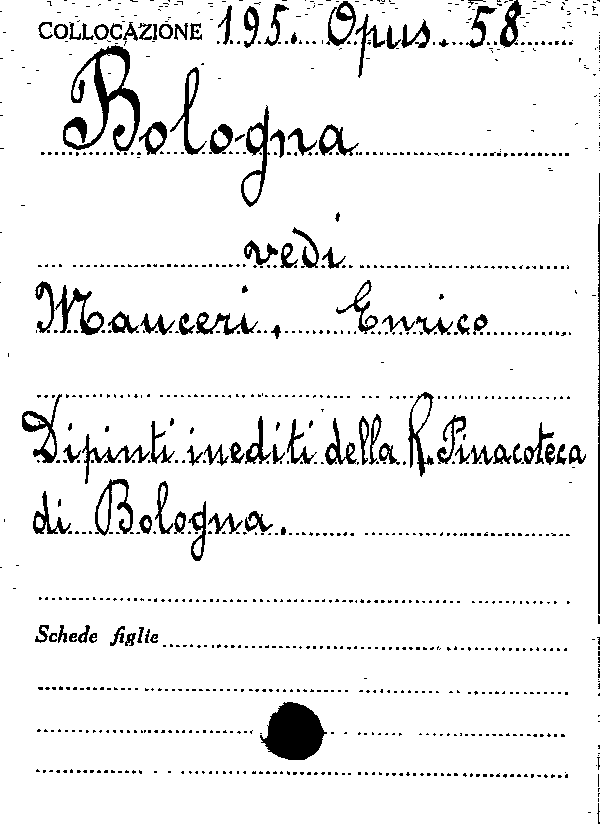 COLLOCAZIONE 195. Opus. 58
Bologna
vedi
Mauceri, Enrico
Dipinti inediti della R. Pinacoteca
di Bologna.
Schede figlie